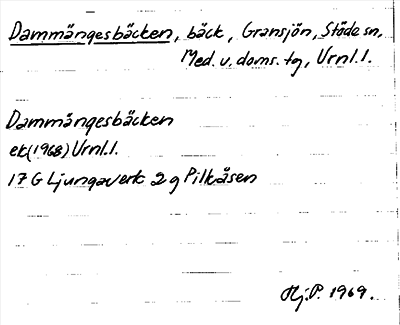 Dammängesbäcken, bäck, Gransjön, Stöde sn,
Med. v. doms. tg, Vrnl.l.
Dammängesbäcken
ek (1968) Vrnl.l.
17 G Ljungaverk 2 g Pilkåsen
Hj.P. 1969.